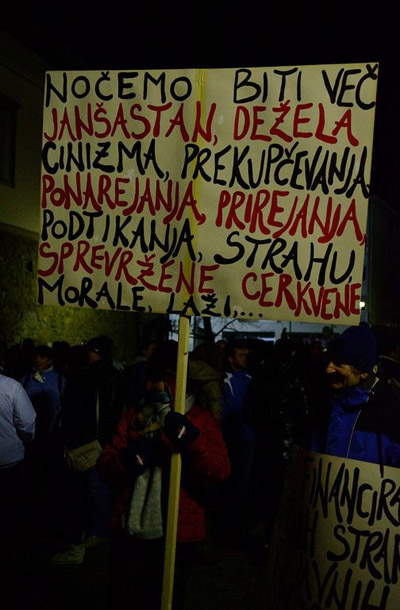 NOČEMO BITI VEČ
JANŠASTAN, DEŽELA
CINIZMA, PREKUPČEVANJA
PONAREJANJA, PRIREJANJA,
PODTIKANJA, STRAHU,
SPREVRŽENE CERKVENE
MORALE, LAŽI,...
STRAN